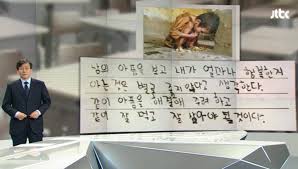 jtbc
남의 아픔을 보고 내가 얼마나 행복한지
아는 것은 별로 좋지 않다고 생각한다.
같이 아픔을 해결해 주려 하고
같이 잘 먹고 잘 살아야 될 것이다.